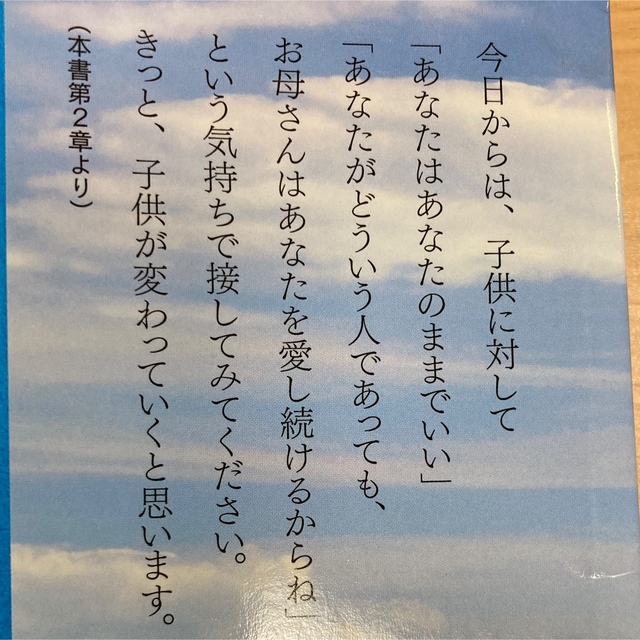 今日からは、子供に対して
「あなたはあなたのままでいい」
「あなたがどういう人であっても、
お母さんはあなたを愛し続けるからね」
という気持ちで接してみてください。
きっと、子供が変わっていくと思います。
（本書第2章より）